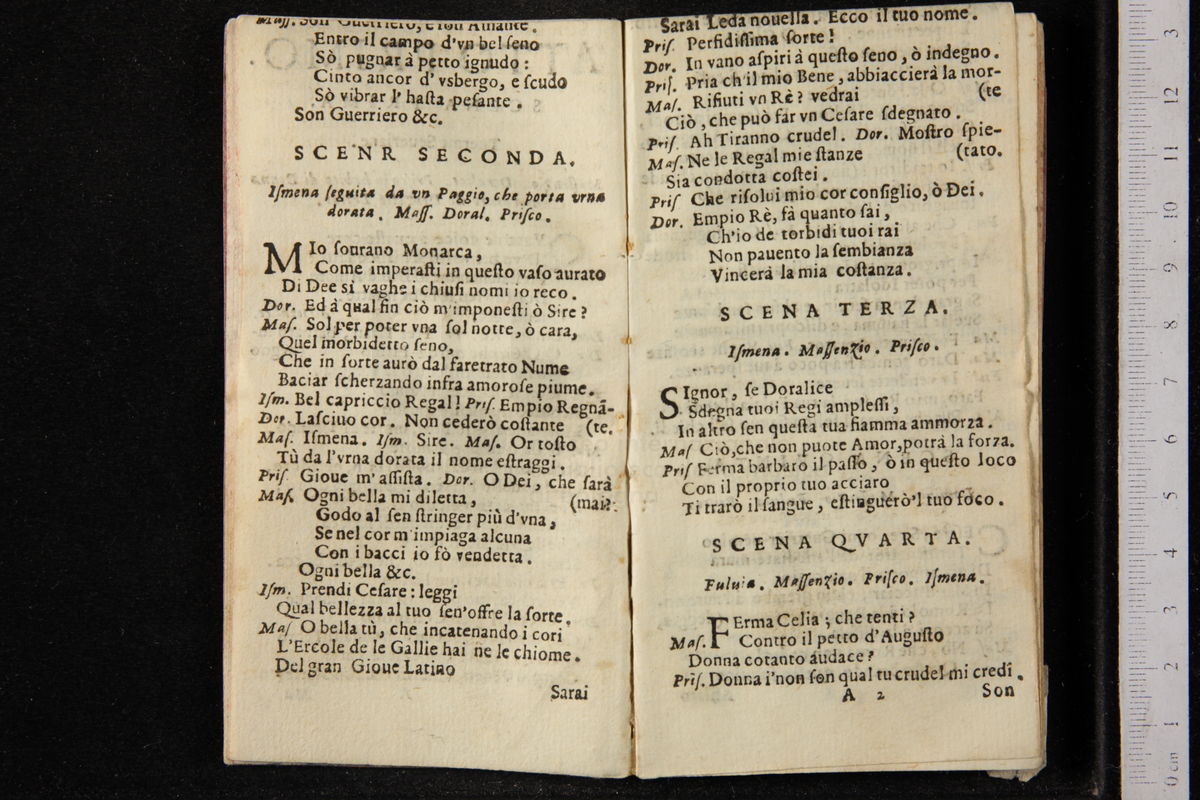 Maſſ. Son Guerriero, e ſon Amante.
Entro il campo d'vn bel ſeno
Sò pugnar à petto ignudo:
Cinto ancor d'vsbergo, e ſcudo
Sò vibrar l'haſta peſante.
Son Guerriero &c.
SCENR SECONDA.
Iſmena ſeguita da vn Paggio, che porta vrna
dorata. Maſſ. Doral. Priſco.
MIo ſourano Monarca,
Come imperaſti in queſto vaſo aurato
Di Dee sì vaghe i chiuſi nomi io reco.
Dor. Ed à qual fin ciò m'imponeſti ò Sire?
Maſ. Sol per poter vna ſol notte, ò cara,
Quel morbidetto ſeno,
Che in ſorte aurò dal faretrato Nume
Baciar ſcherzando infra amoroſe piume.
Iſm. Bel capriccio Regal! Priſ. Empio Regnã-
Dor. Laſciuo cor. Non cederò coſtante (te.
Maſ. Iſmena. Iſm. Sire. Maſ. Or toſto
Tù da l'vrna dorata il nome eſtraggi.
Priſ. Gioue m'aſſiſta. Dor. O Dei, che ſarà
Maſ. Ogni bella mi diletta, (mai?
Godo al ſen ſtringer più d'vna,
Se nel cor m'impiaga alcuna
Con i bacci io fò vendetta.
Ogni bella &c.
Iſm. Prendi Ceſare: leggi
Qual bellezza al tuo ſen'offre la ſorte.
Maſ O bella tù, che incatenando i cori
L'Ercole de le Gallie hai ne le chiome.
Del gran Gioue Latino
Sarai
Sarai Leda nouella. Ecco il tuo nome.
Priſ. Perfidiſſima ſorte!
Dor. In vano aſpiri à queſto ſeno, ò indegno.
Priſ. Pria ch'il mio Bene, abbiaccierà la mor-
Maſ. Rifiuti vn Rè? vedrai (te
Ciò, che può far vn Ceſare ſdegnato.
Priſ. Ah Tiranno crudel. Dor. Moſtro ſpie-
Maſ. Ne le Regal mie ſtanze (tato.
Sia condotta coſtei.
Priſ Che riſolui mio cor conſiglio, ò Dei.
Dor. Empio Rè, fà quanto ſai,
Ch'io de torbidi tuoi rai
Non pauento la ſembianza
Vincerà la mia coſtanza.
SCENA TERZA.
Iſmena. Maſſenzio. Priſco.
SIgnor, ſe Doralice
Sdegna tuoi Regi ampleſſi,
In altro ſen queſta tua fiamma ammorza.
Maſ Ciò, che non puote Amor, potrà la forza.
Priſ Ferma barbaro il paſſo, ò in queſto loco
Con il proprio tuo acciaro
Ti trarò il ſangue, eſtinguerò'l tuo foco.
SCENA QVARTA.
Fuluia. Maſſenzio. Priſco. Iſmena.
FErma Celia; che tenti?
Maſ. Contro il petto d'Auguſto
Donna cotanto audace?
Priſ. Donna i'non ſon qual tu crudel mi credi.
A 2 Son
0 cm 1 2 3 4 5 6 7 8 9 10 11 12 3